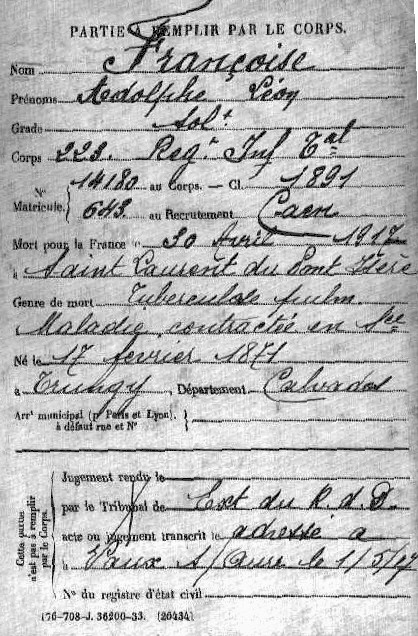 PARTIE A REMPLIR PAR LE CORPS.
Nom Françoise
Prénoms Adolphe Léon
Grade Solt
Corps 223. Regt Inf Tal
N° Matricule. { 14180 au Corps. — Cl. 1891
643 au Recrutement Caen
Mort pour la France le 30 Avril 1917
à Saint Laurent du Pont Isère
Genre de mort Tuberculose pulm.
Maladie contractée en Sce
Né le 17 février 1871
à Trungy Département Calvados
Arrt municipal (pr Paris et Lyon),
à défaut rue et N°
Cette partie n'est pas à remplir par le Corps.
Jugement rendu le
par le Tribunal de Ext du R. d. D
acte ou jugement transcrit le adressé à
à Vaux s/ Aure le 1/5/17
N° du registre d'état civil
176-708-J. 36200-33. (26434)